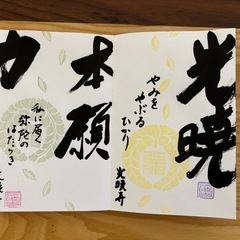 光暁
やみを
やぶる
ひかり
光暁寺
本願
力
私に届く
弥陀の
はたらき